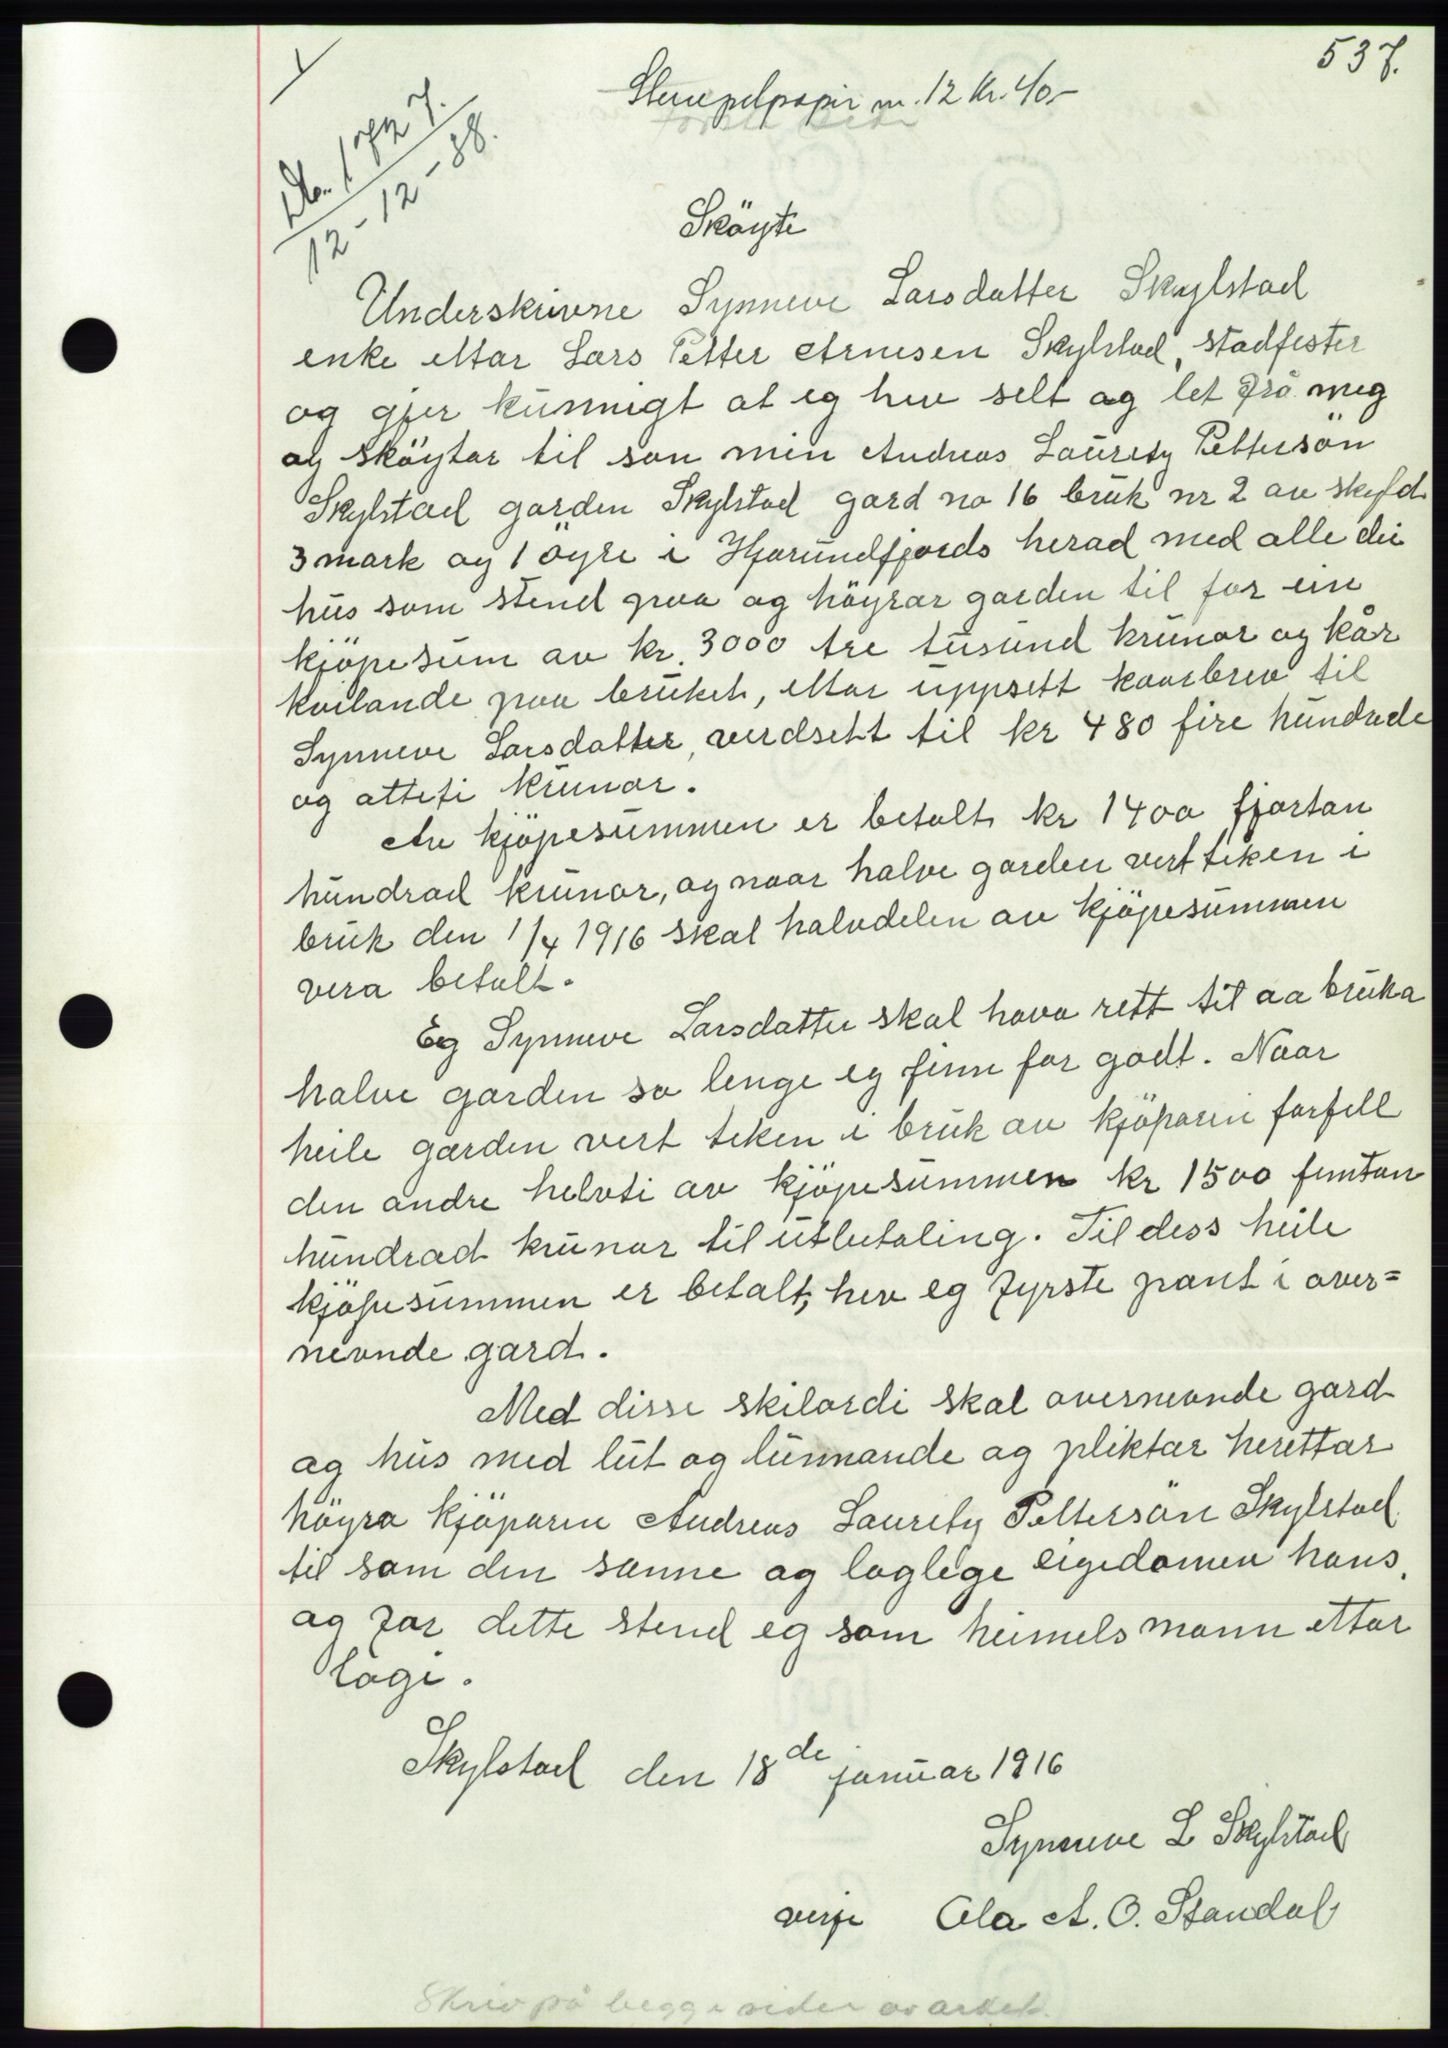 537.
Stempelpapir m. 12 kr. 40.-
Db. 1727.
12-12-38.
Sköyte
Underskrivne Synneve Larsdatter Skylstad
enke ettar Lars Petter Arnesen Skylstad, stadfester
og gjer kunnigt at eg hev selt og let frå meg
og sköytar til son min Andreas Lauritz Petterson
Skylstad garden Skylstad gard no 16 bruk nr 2 av skyld
3 mark og 1 öyre i Hjorundfjords herad med alle dei
hus som stend paa og höyrar garden til for ein
kjöpesum av kr. 3000 tre tusund krunor og kår
kvilande paa bruket, ettar uppsett kaarbrev til
Synneve Larsdatter, verdsett til kr 480 fire hundrade
og åtteti krunor.
Av kjöpesummen er betalt kr 1400 fjortan
hundrad krunor, og naar halve garden vert teken i
bruk den 1/4 1916 skal halvdelen av kjöpesummen
vera betalt.
Eg Synneve Larsdatter skal hava rett til aa bruka
halve garden so lenge eg finn for godt. Naar
heile garden vert teken i bruk av kjöparen forfell
den andre helvti av kjöpesummen kr 1500 femtan
hundrad krunor til utbetaling. Til dess heile
kjöpesummen er betalt, hev eg fyrste pant i over=
nevnde gard.
Med disse skilordi skal overnevnde gard
og hus med lut og lunnande og pliktar herettar
höyra kjöparen Andreas Lauritz Petterson Skylstad
til som den sanne og loglege eigedomen hans,
og for dette stend eg som heimelsmann ettar
logi.
Skylstad den 18de januar 1916
Synneve L Skylstad
verje Ola A. O. Standal
Skriv på begge sider av arket.